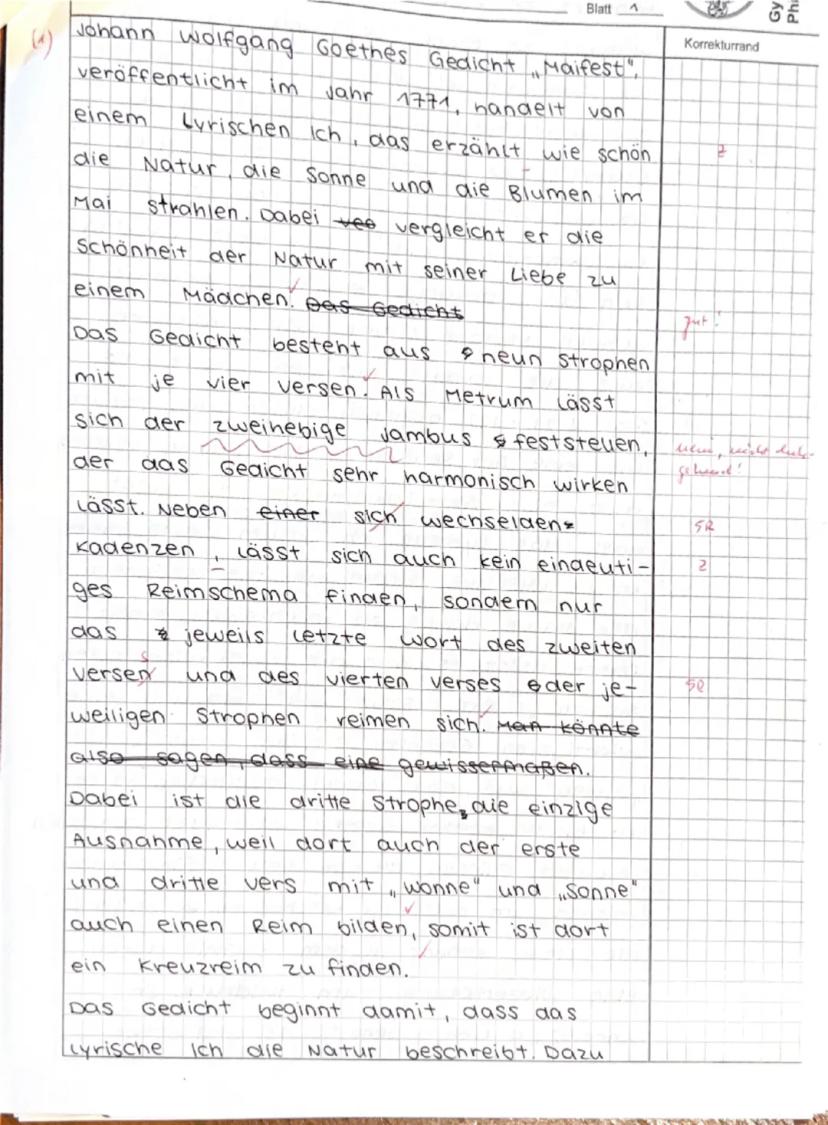 Blatt 1
Gy
Phi
Korrekturrand
(1)
Johann Wolfgang Goethes Gedicht „Maifest",
veröffentlicht im Jahr 1771, handelt von
einem Lyrischen Ich, das erzählt wie schön
z
die Natur, die Sonne und die Blumen im
Mai strahlen. Dabei vee vergleicht er die
Schönheit der Natur mit seiner Liebe zu
einem Mädchen. Das Gedicht
gut!
Das Gedicht besteht aus neun Strophen
mit je vier Versen. Als Metrum lässt
sich der zweihebige Jambus feststellen,
nein, nicht durch-
gehend!
der das Gedicht sehr harmonisch wirken
lässt. Neben einer sich wechselden
SR
Kadenzen, lässt sich auch kein eindeuti-
z
ges Reimschema finden, sondern nur
das jeweils letzte Wort des zweiten
s
Versen und des vierten Verses der je-
SR
weiligen Strophen reimen sich. Man könnte
also sagen, dass eine gewissermaßen.
Dabei ist die dritte Strophe, die einzige
Ausnahme, weil dort auch der erste
und dritte Vers mit „Wonne" und „Sonne"
auch einen Reim bilden, somit ist dort
ein Kreuzreim zu finden.
Das Gedicht beginnt damit, dass das
Lyrische Ich die Natur beschreibt. Dazu